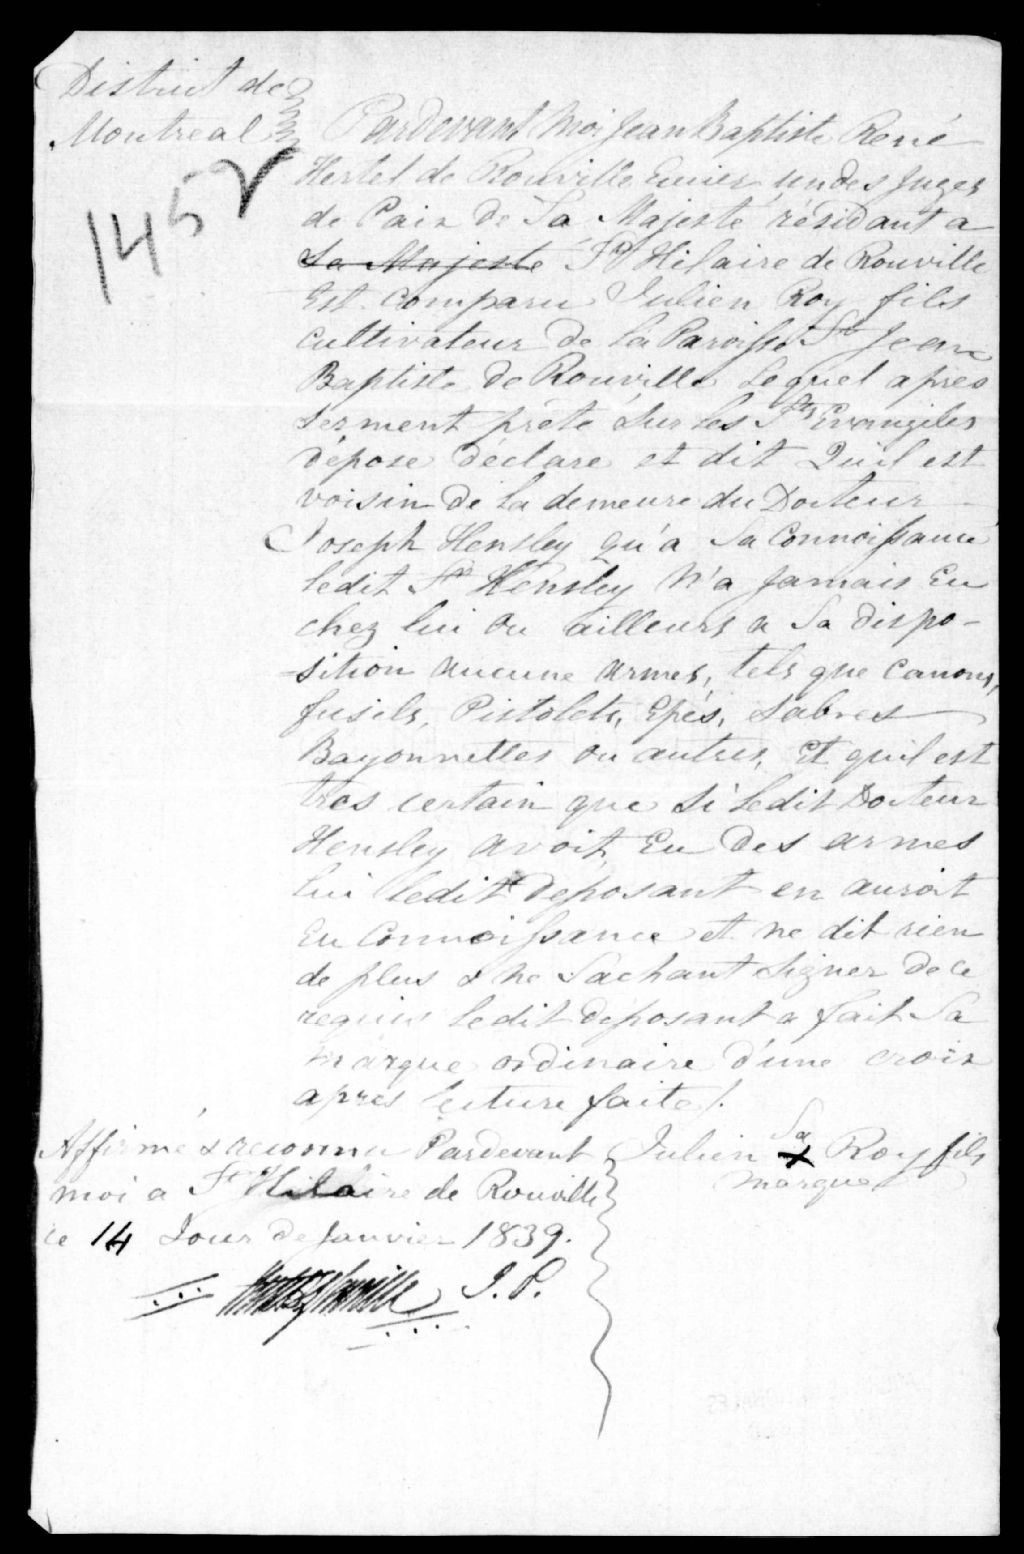 District de
Montreal
1452
Pardevant Moi Jean Baptiste René
Hertel de Rouville Ecuier, un des Juges
de Paix de Sa Majesté, résidant a
S<sup>t</sup> Hilaire de Rouville
Est Comparu Julien Roy fils
Cultivateur de la Paroisse S<sup>t</sup> Jean
Baptiste de Rouville Lequel après
Serment prété Sur les S<sup>ts</sup> Evangiles
dépose déclare et dit Quil est
voisin de la demeure du Docteur
Joseph Hensley qu'a Sa Connoissance
ledit S<sup>r</sup> Hensley N'a Jamais Eu
chez lui ou ailleurs a Sa dispo-
-sition aucune armes, tels que Canons,
fusils, Pistolets, Epés, Sabres
Bayonnettes ou autres, Et quil est
tres certain que Si Ledit Docteur
Hensley avoit Eu des armes
lui ledit déposant en auroit
Eu Connoissance et ne dit rien
de plus & ne Sachant Signer de ce
requis ledit déposant a fait Sa
marque ordinaire d'une croix
apres lecture faite /.
Affirmé & reconnu Pardevant
moi a S<sup>t</sup> Hilaire de Rouville
ce 14 Jour de Janvier 1839.
J. P.
Julien Sa x Roy fils
marque